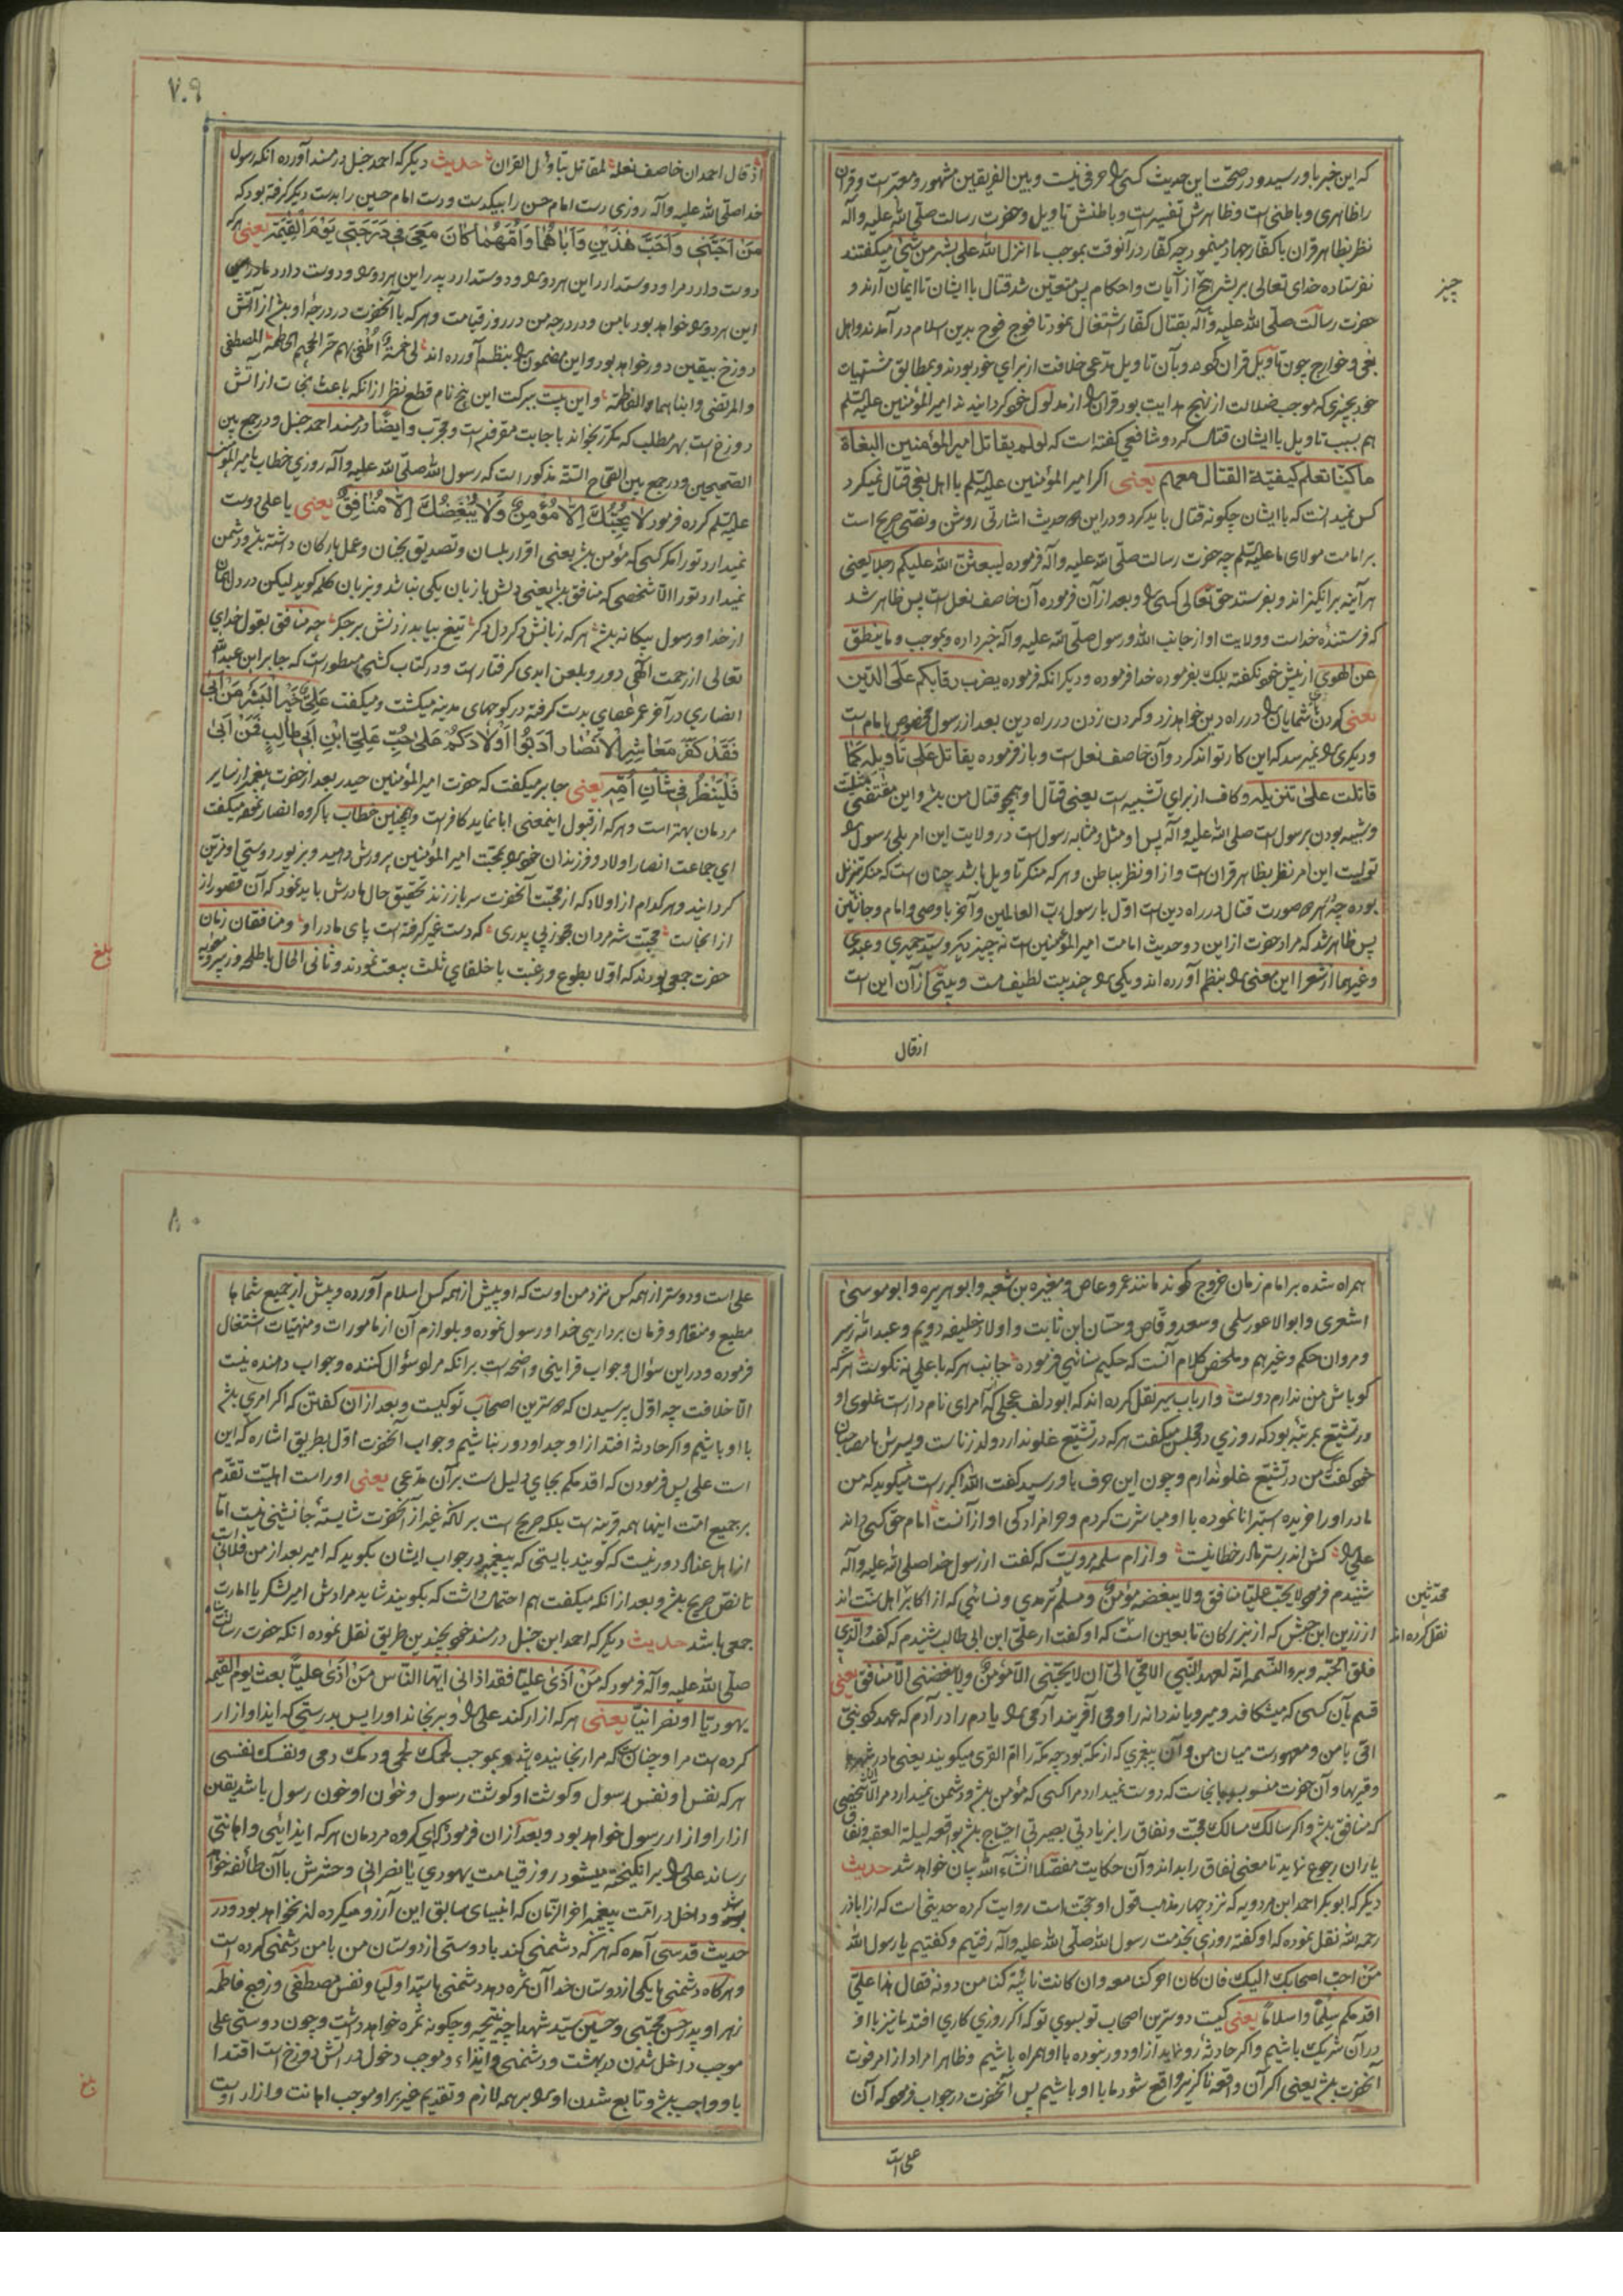 که این خبر باو رسید و در صحت این حدیث کسی را حرفی نیست و بین الفریقین مشهور و معتبر است و قران
را ظاهری و باطنی است و ظاهرش تفسیرست و باطنش تاویل و حضرت رسالت صلی الله علیه وآله
نظر بظاهر قران با کفار جهاد مینمود چه کفار در آنوقت بموجب ما انزل الله علی بشر من شیئ میکفتند
نفرستاده خدای تعالی بر بشر هیچ از آیات و احکام پس متعین شد قتال با ایشان تا ایمان آرند و
حضرت رسالت صلی الله علیه وآله بقتال کفار اشتغال نمود تا فوج فوج بدین اسلام در آمدند و اهل
بغی و خوارج چون تاویل قران کردند و بآن تاویل مدعی خلافت از برای خود بودند و بمطابق مشتهیات
خود بچیزی که موجب ضلالت از نهج هدایت بود قران را از مدلول خود کردانیدند امیر المؤمنین علیه السلم
هم بسبب تاویل با ایشان قتال کرد و شافعی کفته است که لو لم یقاتل امیر المؤمنین البغاة
ما کنا نعلم کیفیة القتال معهم یعنی اکر امیر المؤمنین علیه السلم با اهل بغی قتال نمیکرد
کس نمیدانست که با ایشان چکونه قتال باید کرد و در این حدیث اشارتی روشن و نصی صریح است
بر امامت مولای ما علیه السلم چه حضرت رسالت صلی الله علیه وآله فرموده لیبعثن الله علیکم رجلا یعنی
هر آینه بر انکیزاند و بفرستد حق تعالی کسی را و بعد از آن فرموده آن خاصف نعل است پس ظاهر شد
که فرستندهٔ خداست و ولایت او از جانب الله و رسول صلی الله علیه وآله خبر داده و بموجب و ما ینطق
عن الهوی از پیش خود نکفته بلکه بفرموده خدا فرموده و دیکر انکه فرموده یضرب رقابکم علی الدین
یعنی کردن شمایان را در راه دین خواهد زد و کردن زدن در راه دین بعد از رسول مخصوص بامام است
و دیکری را نمیرسد که این کار تواند کرد و آن خاصف نعل است و باز فرموده یقاتل علی تأویله کما
قاتلت علی تنزیله و کاف از برای تشبیه است یعنی قتال او همچو قتال من باشد و این مقتضی
و شبیه بودن برسول است صلی الله علیه وآله پس او مثل و مشابه رسول است در ولایت این امر
تولیت این امر نظر بظاهر قران است و از او نظر بباطن و هر که منکر تاویل باشد چنان است که منکر تنزیل
بوده چه هر دو صورت قتال در راه دین است اول با رسول رب العالمین و آخر با وصی و امام و جانشین
پس ظاهر شد که مراد حضرت از این دو حدیث امامت امیر المؤمنین است نه چیز دیکر و سید حمیری و عبدی
و غیرهما از شعرا این معنی را بنظم آورده اند و یکی را چند بیت لطیف هست و بیتی از آن این است
اذ قال
چیز
۷۰۹
اذ قال احمد ان خاصف نعله لمقاتل بتأویل القران حدیث دیکر که احمد حنبل در مسند آورده انکه رسول
خدا صلی الله علیه وآله روزی دست امام حسن را بیکدست و دست امام حسین را بدست دیکر کرفته بود که
من احبنی واحب هذین واباهما وامهما کان معی فی درجتی یوم القیمة یعنی هر که
دوست دارد مرا و دوستدارد این هر دو را و دوستدارد پدر این هر دو را و دوست دارد مادر
این هر دو را خواهد بود با من و در درجه من در روز قیامت و هر که با آنحضرت در درجه او باشد از آتش
دوزخ بیقین دور خواهد بود و این مضمون را بنظم آورده اند لی خمسة اطفی بهم حر الجحیم الحاطمة المصطفی
و المرتضی و ابناهما و الفاطمة و این بیت ببرکت این پنج نام قطع نظر از انکه باعث نجات از آتش
دوزخ است بهر مطلب که مکرر بخواند باجابت مقرونست و مجرب و ایضا در مسند احمد حنبل و در جمع بین
الصحیحین و در جمع بین الصحاح الستة مذکور است که رسول الله صلی الله علیه وآله روزی خطاب بامیر المؤمنین
علیه السلم کرده فرمود لا یحبک الا مؤمن ولا یبغضک الا منافق یعنی یا علی دوست
نمیدارد تو را مکر کسی که مؤمن باشد یعنی اقرار بلسان و تصدیق بجنان و عمل بارکان داشته باشد و دشمن
نمیدارد تو را الا شخصی که منافق باشد یعنی دلش با زبان یکی نباشد و بزبان کلمه کوید لیکن در دل
از خدا و رسول بیکانه باشد هر که زبانش دکر و دل دکر تیغ بباید زدنش بر جکر چه منافق بقول خدای
تعالی از رحمت الهی دور و بلعن ابدی کرفتار است و در کتاب کشی مسطور است که جابر ابن عبد الله
انصاری در آخر عمر عصای بدست کرفته در کوچهای مدینه میکشت و میکفت علی خیر البشر من ابی
فقد کفر معاشر الانصار ادبوا اولادکم علی حب علی ابن ابی طالب فمن ابی
فلینظر فی شان امه یعنی جابر میکفت که حضرت امیر المؤمنین حیدر بعد از حضرت پیغمبر از سایر
مردمان بهتر است و هر که از قبول اینمعنی ابا نماید کافر است و همچنین خطاب با کروه انصار نموده میکفت
ای جماعت انصار اولاد و فرزندان خود را بمحبت امیر المؤمنین پرورش دهید و بزیور دوستی او مزین
کردانید و هر کدام از اولاد که از محبت آنحضرت سر باز زند تحقیق حال مادرش باید نمود که آن قصور از
از انجاست محبت شه مردان مجو ز بی پدری که دست غیر کرفته است پای مادر او و منافقان زمان
حضرت جمعی بودند که اولا بطوع و رغبت با خلفای ثلث بیعت نمودند و ثانی الحال با طلحه و زبیر
بلغ
همراه شده بر امام زمان خروج کردند مانند عمرو عاص و مغیره بن شعبه و ابو هریره و ابو موسی
اشعری و ابو الاعور سلمی و سعد وقاص و حسان ابن ثابت و اولاد خلیفه دویم و عبد الله زبیر
و مروان حکم و غیرهم و ملخص کلام آنست که حکیم سنائی فرموده جانب هر که با علی نه نکوست هر که
کو باش من ندارم دوست و ارباب سیر نقل کرده اند که ابو دلف عجلی که امرای نامدار است غلوی او
در تشیع بمرتبه بود که روزی در مجلس میکفت هر که در تشیع غلو ندارد ولد زناست و پسرش با مصاحبان
خود کفت من در تشیع غلو ندارم و چون این حرف باو رسید کفت الله اکبر راست میکوید که من
مادر او را خریده استبرا نا نموده با او مباشرت کردم و حرامزادکی او از آنست امام حق کسی داند
علی را کش اندر بستر مادر خطا نیست و از ام سلمه مرویست که کفت از رسول خدا صلی الله علیه وآله
شنیدم فرمود لا یحب علیا منافق ولا یبغضه مؤمن و مسلم و ترمدی و نسائی که از اکابر اهل سنت اند
از زرین ابن حبیش که از بزرکان تابعین است که او کفت از علی ابن ابی طالب شنیدم که کفت والذی
فلق الحبة و برء النسمة انه لعهد النبی الامی الی ان لا یحبنی الا مؤمن ولا یبغضنی الا منافق یعنی
قسم بآن کسی که میشکافد و میرویاند دانه را و می آفریند آدمی را یا دم را در آدم که عهد کرد نبی
امی با من و معهود است میان من و آن پیغمبری که از مکه بود چه مکه را ام القری میکویند یعنی مادر شهرها
و قریها و آن حضرت منسوب بانجاست که دوست نمیدارد مرا کسی که مؤمن باشد و دشمن نمیدارد مرا الا شخصی
که منافق باشد و اکر سالک مسالک محبت و نفاق را بزیادتی بصیرتی احتیاج باشد بواقعه لیلة العقبه و نفاق
یاران رجوع نماید تا معنی نفاق را بداند و آن حکایت مفصلا انشاء الله بیان خواهد شد حدیث
دیکر که ابو بکر احمد ابن مردویه که نزد چهار مذهب قول او حجت است روایت کرده حدیثی است که از اباذر
رحمه الله نقل نموده که او کفته روزی بخدمت رسول الله صلی الله علیه وآله رفتیم و کفتیم یا رسول الله
من احب اصحابک الیک فان کان امر کنا معه وان کانت نائبة کنا من دونه فقال هذا علی
اقدمکم سلما واسلاما یعنی کیست دوسترین اصحاب تو بسوی تو که اکر روزی کاری افتد ما نیز با او
در آن شریک باشیم و اکر حادثه رو نماید از او دور نبوده با او همراه باشیم و ظاهرا مراد از امر فوت
آنحضرت باشد یعنی اکر آن واقعه ناکزیر واقع شود ما با او باشیم پس آنحضرت در جواب فرمود که آن
علی است
محدثین
نقل کرده اند
۸۰
علی است و دوستر از همه کس نزد من اوست که او پیش از همه کس اسلام آورده و پیش از جمیع شماها
مطیع و منقاد و فرمان برداریی خدا و رسول نموده و بلوازم آن از مامورات و منهیات اشتغال
فرموده و در این سؤال و جواب قراینی واضحه است بر انکه مراد سؤال کننده و جواب دهنده نیست
الا خلافت چه اول پرسیدن که دوسترین اصحاب تو کیست و بعد از ان کفتن که اکر امری باشد
با او باشیم و اکر حادثه افتد از او جدا و دور نباشیم و جواب آنحضرت اول بطریق اشاره که این
است علی پس فرمودن که اقدمکم بجای دلیل است بر آن مدعی یعنی او راست اهلیت تقدم
بر جمیع امت اینها همه قرینه است بلکه صریح است بر انکه غیر از آنحضرت شایستهٔ جانشینی نیست اما
از اهل عناد دور نیست که کویند بایستی که پیغمبر در جواب ایشان بکوید که امیر بعد از من فلانی است
تا نص صریح باشد و بعد از انکه میکفت هم احتمال داشت که بکویند شاید مرادش امیر لشکر یا امارت
جمعی باشد حدیث دیکر که احمد ابن حنبل در مسند خود بچندین طریق نقل نموده انکه حضرت رسالت
صلی الله علیه وآله فرمود که من اذی علیا فقد اذانی ایها الناس من اذی علیا بعث یوم القیمة
یهودیا او نصرانیا یعنی هر که ازار کند علی را و برنجاند او را پس بدرستی که ایذا و ازار
کرده است مرا و چنان که مرا رنجانیده باشد و بموجب لحمک لحمی و دمک دمی و نفسک نفسی
هر که نفس او نفس رسول و کوشت او کوشت رسول و خون او خون رسول باشد یقین
ازار او ازار رسول خواهد بود و بعد از ان فرمود که ای کروه مردمان هر که ایذائی و اهانتی
رساند علی را بر انکیخته میشود روز قیامت یهودی یا نصرانی و حشرش با آن طائفه خواهد
بود و داخل در امت پیغمبر اخر الزمان که انبیای سابق این آرزو میکرده اند نخواهد بود و در
حدیث قدسی آمده که هر که دشمنی کند با دوستی از دوستان من با من دشمنی کرده است
و هر کاه دشمنی با یکی از دوستان خدا آن ثمره دهد دشمنی با سید اولیا و نفس مصطفی و زوج فاطمه
زهرا و پدر حسن مجتبی و حسین سید شهدا چه نتیجه و چکونه ثمره خواهد داشت و چون دوستی علی
موجب داخل شدن در بهشت و دشمنی و ایذاء او موجب دخول در آتش دوزخ است اقتدا
باو واجب باشد و تابع شدن او را بر همه لازم و تقدیم غیر بر او موجب اهانت و ازار اوست
بلغ